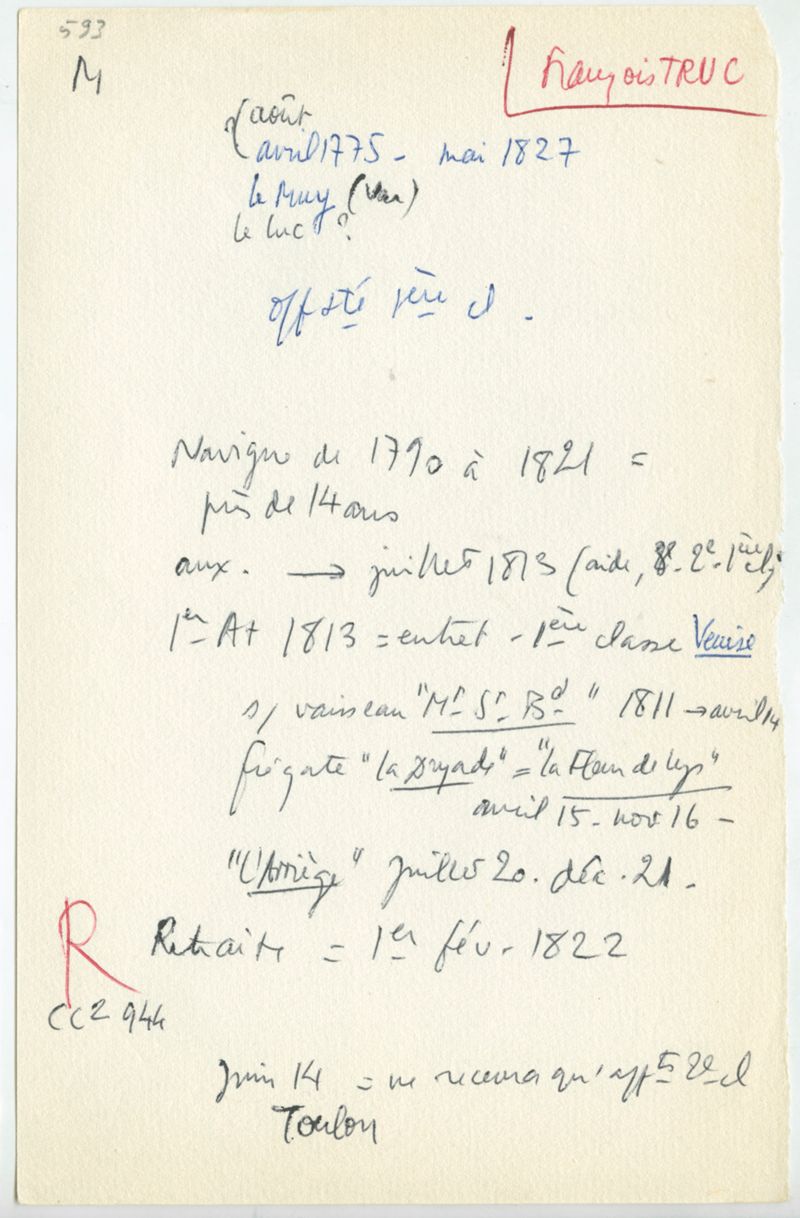 593
M
François TRUC
? (août
avril 1775 - mai 1827
le Muy (Var)
le Luc ?
off sté 1ère cl.
Navigue de 1790 à 1821 =
près de 14 ans
aux. → juillet 1813 (aide, 3e - 2e - 1ère cl)
1er At 1813 = entret - 1ère classe Venise
s/ vaisseau "Mt St Bd" 1811 → avril 14
frégate "la Dryade" = "la Fleur de Lys"
avril 15 - nov 16 -
"L'Arriège" juillet 20. déc. 21.
Retraite = 1er fév. 1822
R
CC2 944
Juin 14 = ne recevra qu'appts 2e cl
Toulon